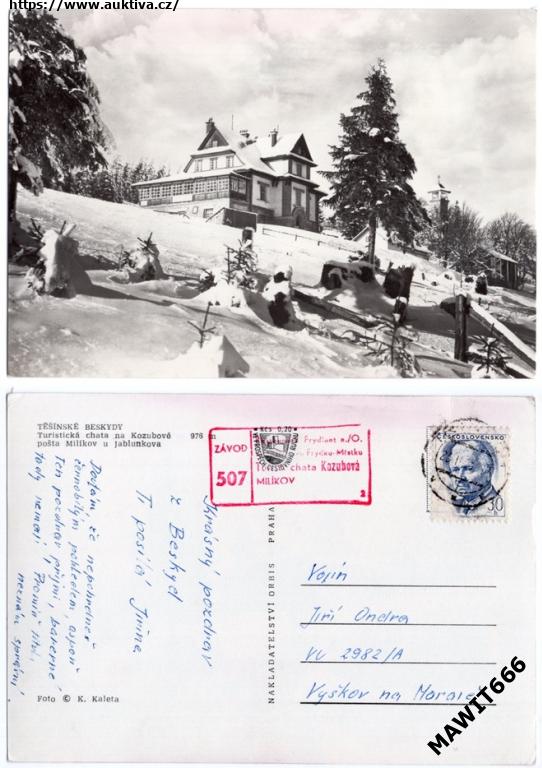 https://www.auktiva.cz/
TĚŠÍNSKÉ BESKYDY
Turistická chata na Kozubové 976 m
pošta Milíkov u Jablunkova
Kčs 0,20
ZÁVOD
507
Frýdlant n./O.
Frýdku-Místku
chata Kozubová
MILÍKOV
2
ČESKOSLOVENSKO
30
h
Doufám, že nepohrdneš
černobílým pohledem, aspoň
Ten pozdrav přijmi, barevné
tady nemají. Promiň titul,
neznám správný
Krásný pozdrav
z Beskyd
Ti posílá
NAKLADATELSTVÍ ORBIS PRAHA
Vojín
Jiří Ondra
VÚ 2982/A
Vyškov na Moravě
Foto © K. Kaleta
MAWIT666